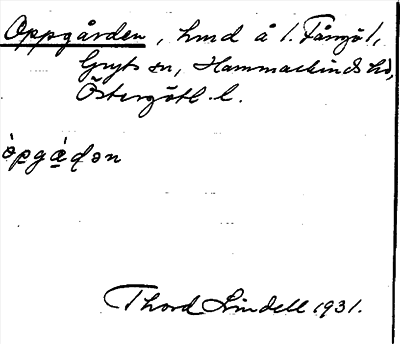 Oppgården, hmd å l. Fångö l,
Gryts sn, Hammarkinds hd,
Östergötl. l.
Thord Lindell 1931.